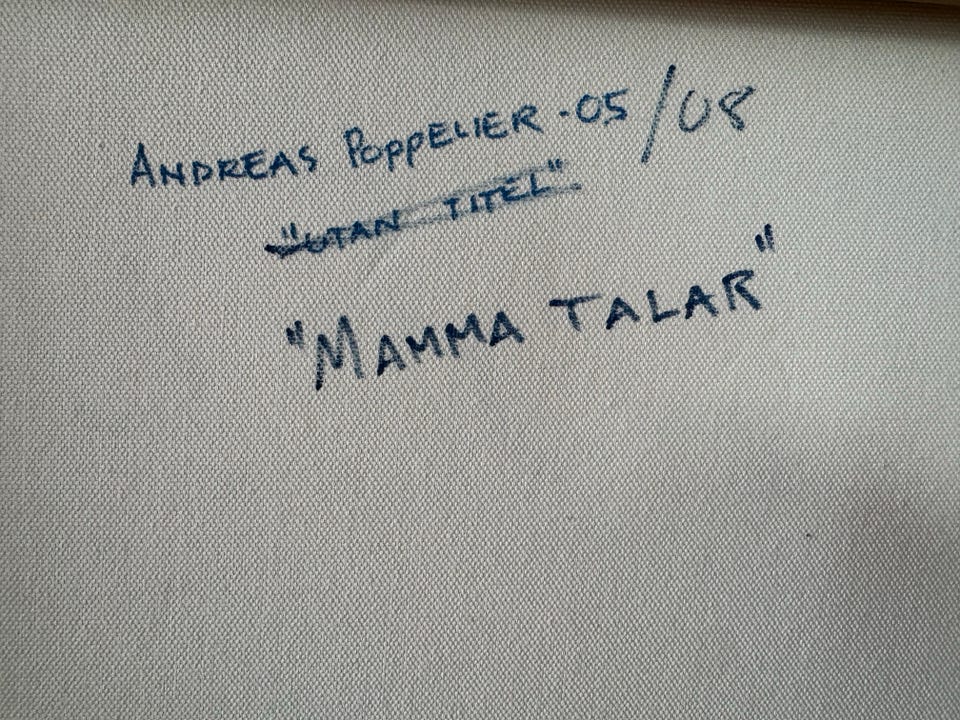 ANDREAS POPPELIER -05/08
"UTAN TITEL"
"MAMMA TALAR"